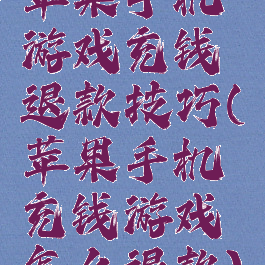 苹果手机
游戏充钱
退款技巧(
苹果手机
充钱游戏
怎么退款)